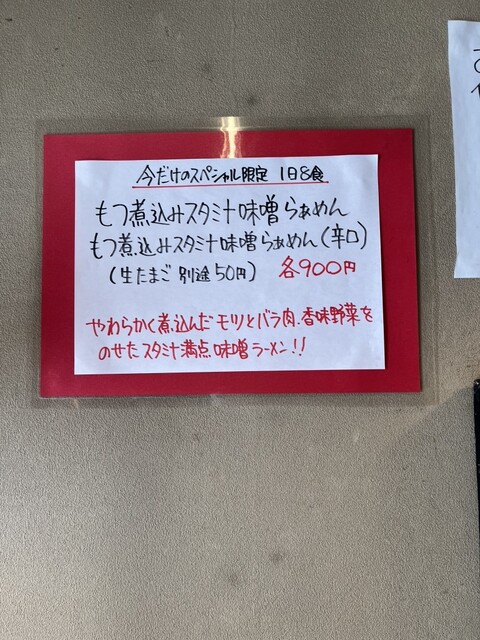 今だけのスペシャル限定 1日8食
もつ煮込みスタミナ味噌らぁめん
もつ煮込みスタミナ味噌らぁめん(辛口)
(生たまご 別途50円) 各900円
やわらかく煮込んだモツとバラ肉、香味野菜を
のせたスタミナ満点味噌ラーメン!!